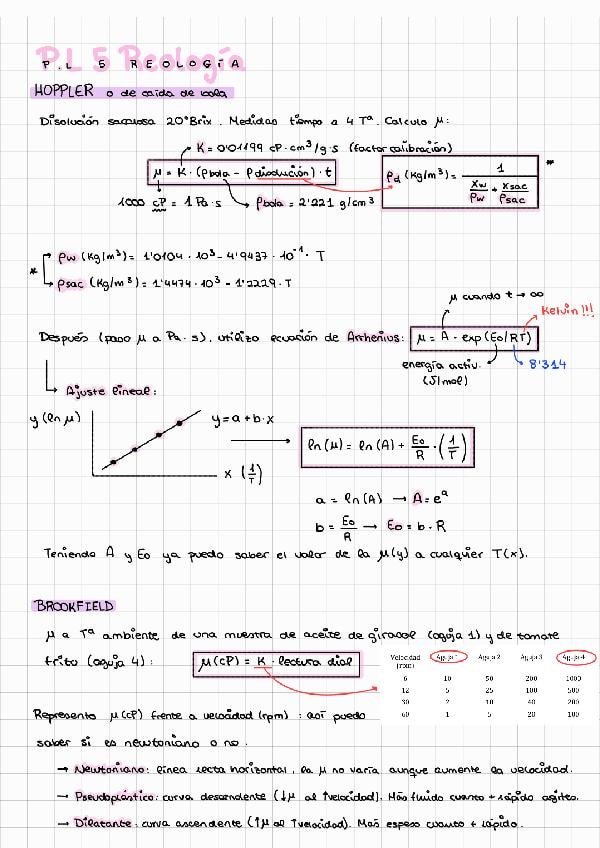 P.L 5 Reología
P.L 5 REOLOGÍA
HÖPPLER o de caída de bola
Disolución sacarosa 20°Brix. Medidas tiempo a 4 Tª. Calculo μ:
K = 0'01199 cP·cm³/g·s (factor calibración)
μ = K · (ρbola - ρdisolución) · t
ρd (Kg/m³) = 1 / (Xw/ρw + Xsac/ρsac) *
1000 cP = 1 Pa·s
ρbola = 2'221 g/cm³
* ρw (Kg/m³) = 1'0104 · 10³ - 4'9437 · 10⁻¹ · T
ρsac (Kg/m³) = 1'4474 · 10³ - 1'2229 · T
μ cuando t → ∞
Kelvin!!!
Después (paso μ a Pa·s), utilizo ecuación de Arrhenius: μ = A · exp(Eo/RT)
energía activ. (J/mol)
8'314
Ajuste lineal:
y (ln μ)
y = a + b·x
x (1/T)
ln(μ) = ln(A) + Eo/R · (1/T)
a = ln(A) → A = eª
b = Eo/R → Eo = b·R
Teniendo A y Eo ya puedo saber el valor de la μ(y) a cualquier T(x).
BROOKFIELD
μ a Tª ambiente de una muestra de aceite de girasol (aguja 1) y de tomate
frito (aguja 4): μ(cP) = K · lectura dial
Velocidad (rpm) Aguja 1 Aguja 2 Aguja 3 Aguja 4
6 10 50 200 1000
12 5 25 100 500
30 2 10 40 200
60 1 5 20 100
Represento μ(cP) frente a velocidad (rpm): así puedo
saber si es newtoniano o no.
→ Newtoniano: línea recta horizontal, la μ no varía aunque aumente la velocidad.
→ Pseudoplástico: curva descendente (↓μ al ↑velocidad). Más fluido cuanto + rápido agites.
→ Dilatante: curva ascendente (↑μ al ↑velocidad). Más espeso cuanto + rápido.